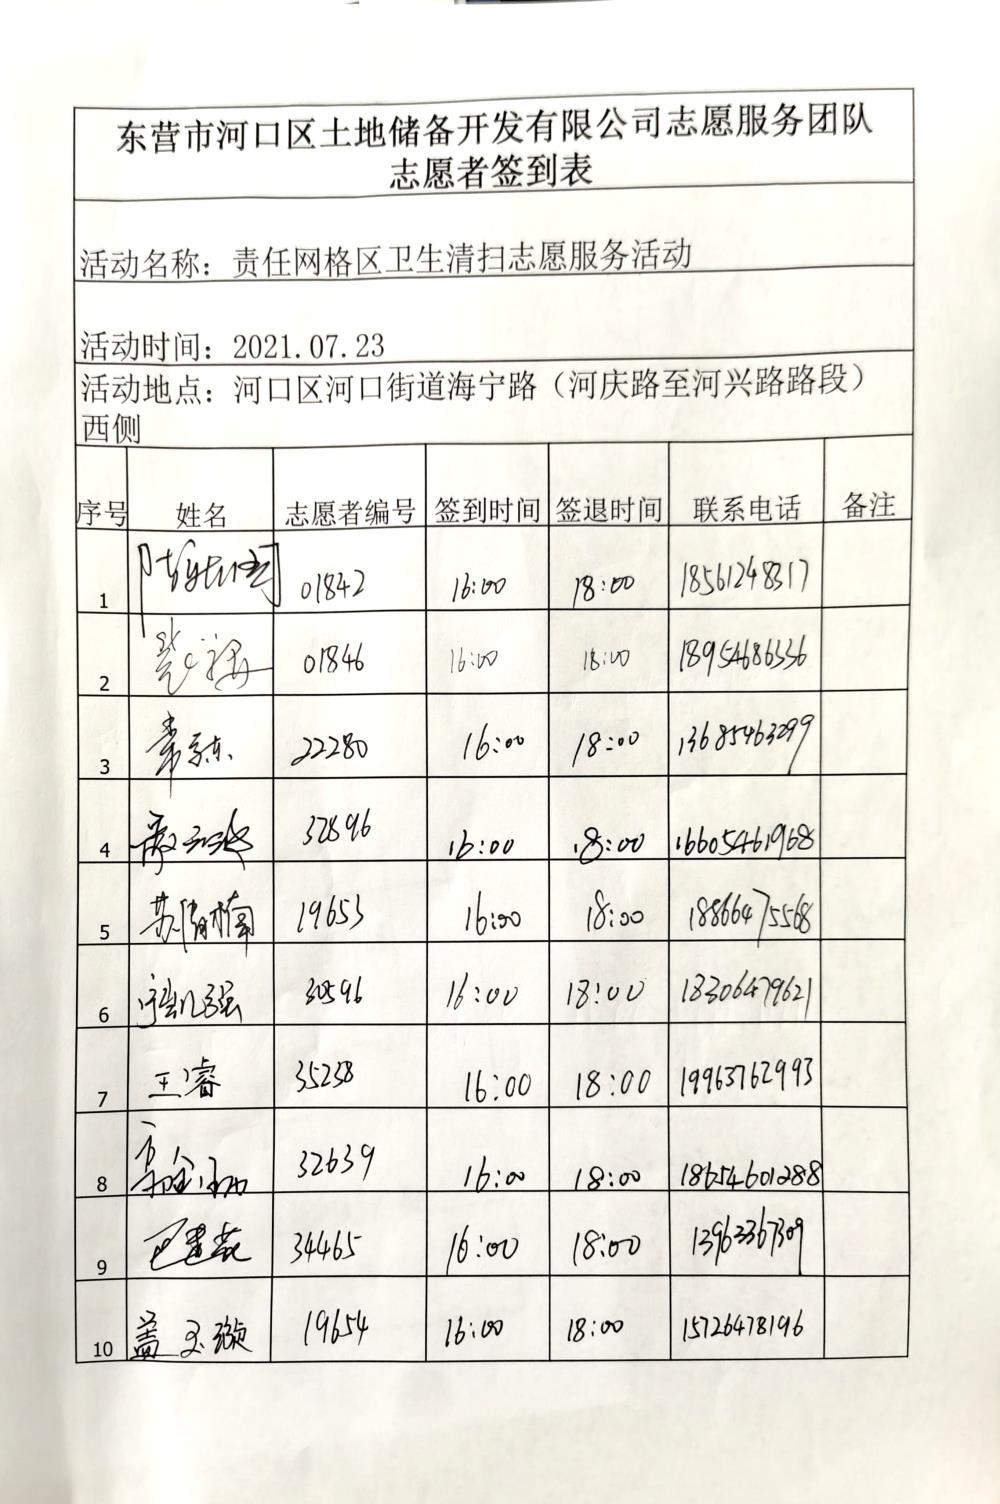 东营市河口区土地储备开发有限公司志愿服务团队
志愿者签到表
活动名称：责任网格区卫生清扫志愿服务活动
活动时间：2021.07.23
活动地点：河口区河口街道海宁路（河庆路至河兴路路段）
西侧
序号 姓名 志愿者编号 签到时间 签退时间 联系电话 备注
1 01842 16:00 18:00 18561248317
2 01846 16:00 18:00 18954686336
3 22280 16:00 18:00 13685463299
4 32896 16:00 18:00 16605461968
5 苏倩楠 19653 16:00 18:00 18866475568
6 30596 16:00 18:00 18306479621
7 王睿 35238 16:00 18:00 19963762993
8 32639 16:00 18:00 18654601288
9 34465 16:00 18:00 13963367309
10 盖玉璇 19654 16:00 18:00 15726478196